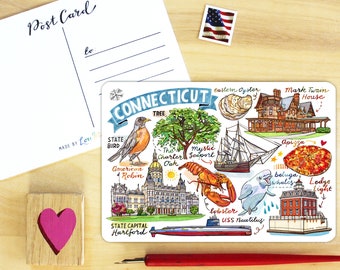 Post Card
to
MADE BY
CONNECTICUT
Eastern Oyster
Mark Twain
House
STATE
BIRD
TREE
The
Charter
Oak
Mystic
Seaport
American
Robin
Apizza
beluga
whales
Ledge
Light
lobster
USS Nautilus
STATE CAPITAL
Hartford